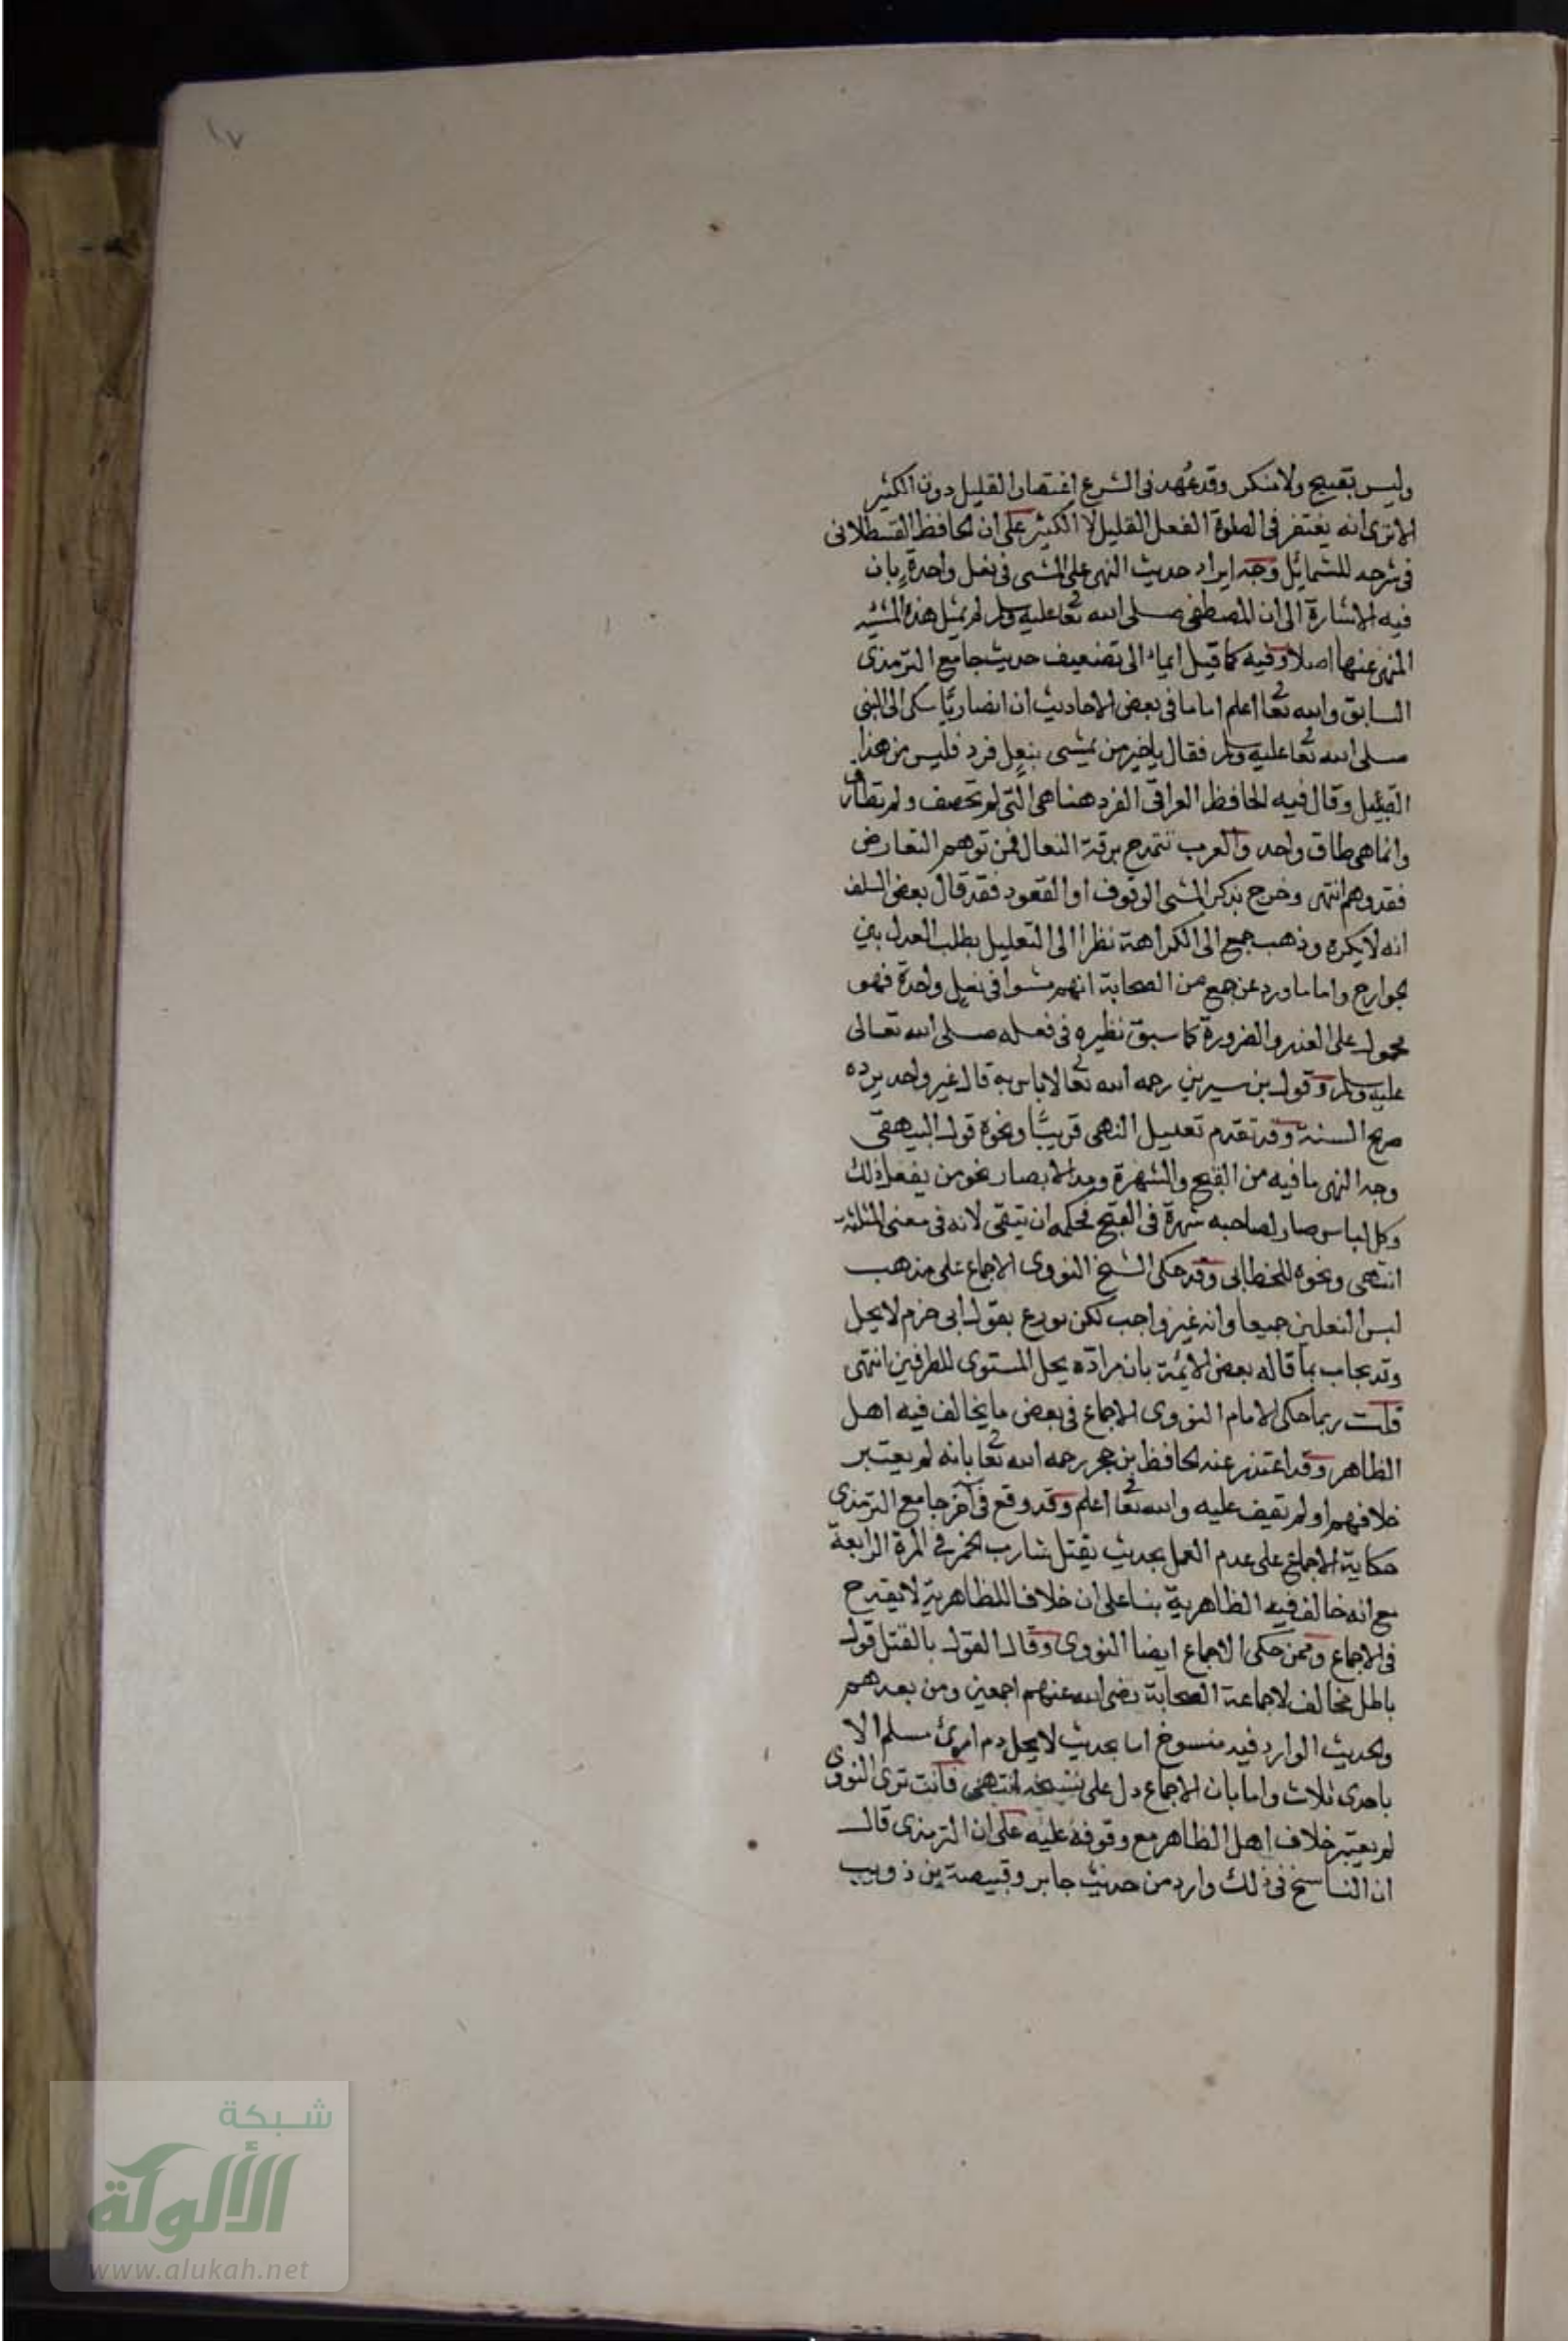 ١٧
وليس بقبيح ولا منكر وقد عُهد فى الشرع اغتفار القليل دون الكثير
الا ترى انه يغتفر فى الصلوة الفعل القليل لا الكثير على ان الحافظ القسطلانى
فى شرحه للشمايل وجه ايراد حديث النهى على المشى فى نعل واحدةٍ بان
فيه الاشارة الى ان المصطفى صلى الله تعا عليه وسلم لم يمش هذه المشية
المنهى عنها اصلا وفيه كما قيل ايماء الى تضعيف حديث جامع الترمذى
السابق والله تعا اعلم اما ما فى بعض الاحاديث ان انصاريًّا شكى الى النبى
صلى الله تعا عليه وسلم فقال يا خير من يمشى بنعلٍ فرد فليس من هذا
القبيل وقال فيه الحافظ العراقى الفرد هنا هى التى لم تخصف ولم تطارق
وانما هى طاق واحد والعرب تتمدح برقة النعال فمن توهم التعارض
فقد وهم انتهى وخرج بذكر المشى الوقوف او القعود فقد قال بعض السلف
انه لا يكره وذهب جمع الى الكراهة نظرا الى التعليل بطلب العدل بين
الجوارح واما ما ورد عن جمع من الصحابة انهم مشوا فى نعلٍ واحدة فهو
محمول على العذر والضرورة كما سبق نظيره فى فعله صلى الله تعالى
عليه وسلم وقول بن سيرين رحمه الله تعا لا باس به قال غير واحد يرده
صريح السنة وقد تقدم تعليل النهى قريبًا ونحوه قول البيهقى
وجه النهى ما فيه من القبح والشهرة ومد الابصار نحو من يفعل ذلك
وكل لباس صار لصاحبه شهرة فى القبح فحكمه ان يتقى لانه فى معنى المثلة
انتهى ونحوه للخطابى وقد حكى الشيخ النووى الاجماع على مذهب
لبس النعلين جميعا وانه غير واجب لكن نوزع بقول ابى حزم لا يحل
وقد يجاب بما قاله بعض الائمة بان مراده يحل المستوى للطرفين انتهى
قلت ربما حكى الامام النووى الاجماع فى بعض ما يخالف فيه اهل
الظاهر وقد اعتذر عنه الحافظ بن حجر رحمه الله تعا بانه لم يعتبر
خلافهم او لم يقف عليه والله تعا اعلم وقد وقع فى آخر جامع الترمذى
حكاية الاجماع على عدم العمل بحديث يقتل شارب الخمر فى المرة الرابعة
مع انه خالف فيه الظاهرية بناء على ان خلاف الظاهرية لا يقدح
فى الاجماع وممن حكى الاجماع ايضا النووى وقال القول بالقتل قول
باطل مخالف لاجماعة الصحابة رضى الله عنهم اجمعين ومن بعدهم
والحديث الوارد فيه منسوخ اما بحديث لا يحل دم امرئ مسلم الا
باحدى ثلاث واما بان الاجماع دل على نسخه انتهى فانت ترى النووى
لم يعتبر خلاف اهل الظاهر مع وقوفه عليه على ان الترمذى قال
ان الناسخ فى ذلك وارد من حديث جابر وقبيصة بن ذويب
شبكة
الألوكة
www.alukah.net